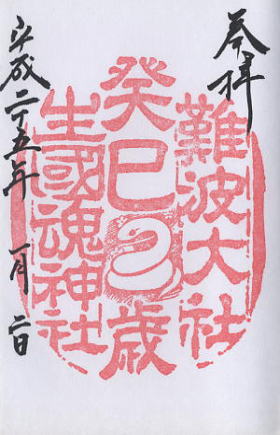 奉拝
難波大社
癸巳歳
生國魂神社
平成二十五年 一月二日